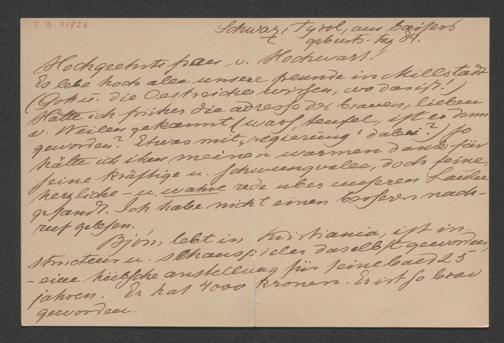 I.B. 71926
Schwaz, Tyrol, am kaisers
geburts-tag 84.
Hochgeehrte frau v. Hochwart!
Es lebe hoch allen unsere freunde in Millstadt
(Gott u. die Oestreicher wissen, wo das ist!)
Hätte ich früher die adresse des braven, lieben
v. Weilen gekannt (was, teufel, ist er denn
geworden? Etwas mit „regierung" dabei?), so
hätte ich ihm meinen warmen dank für
seine kräftige u. schwungvolle, doch feine,
herzliche u. wahre rede über unseren Laube
gesandt. Ich habe nicht einen besseren nach-
ruf gelesen.
Björn lebt in Kristiania, ist in-
structeur u. schauspieler daselbst geworden,
– eine hübsche anstellung für seine bald 25
jahren. Er hat 4000 kronen. Er ist so brav
geworden.